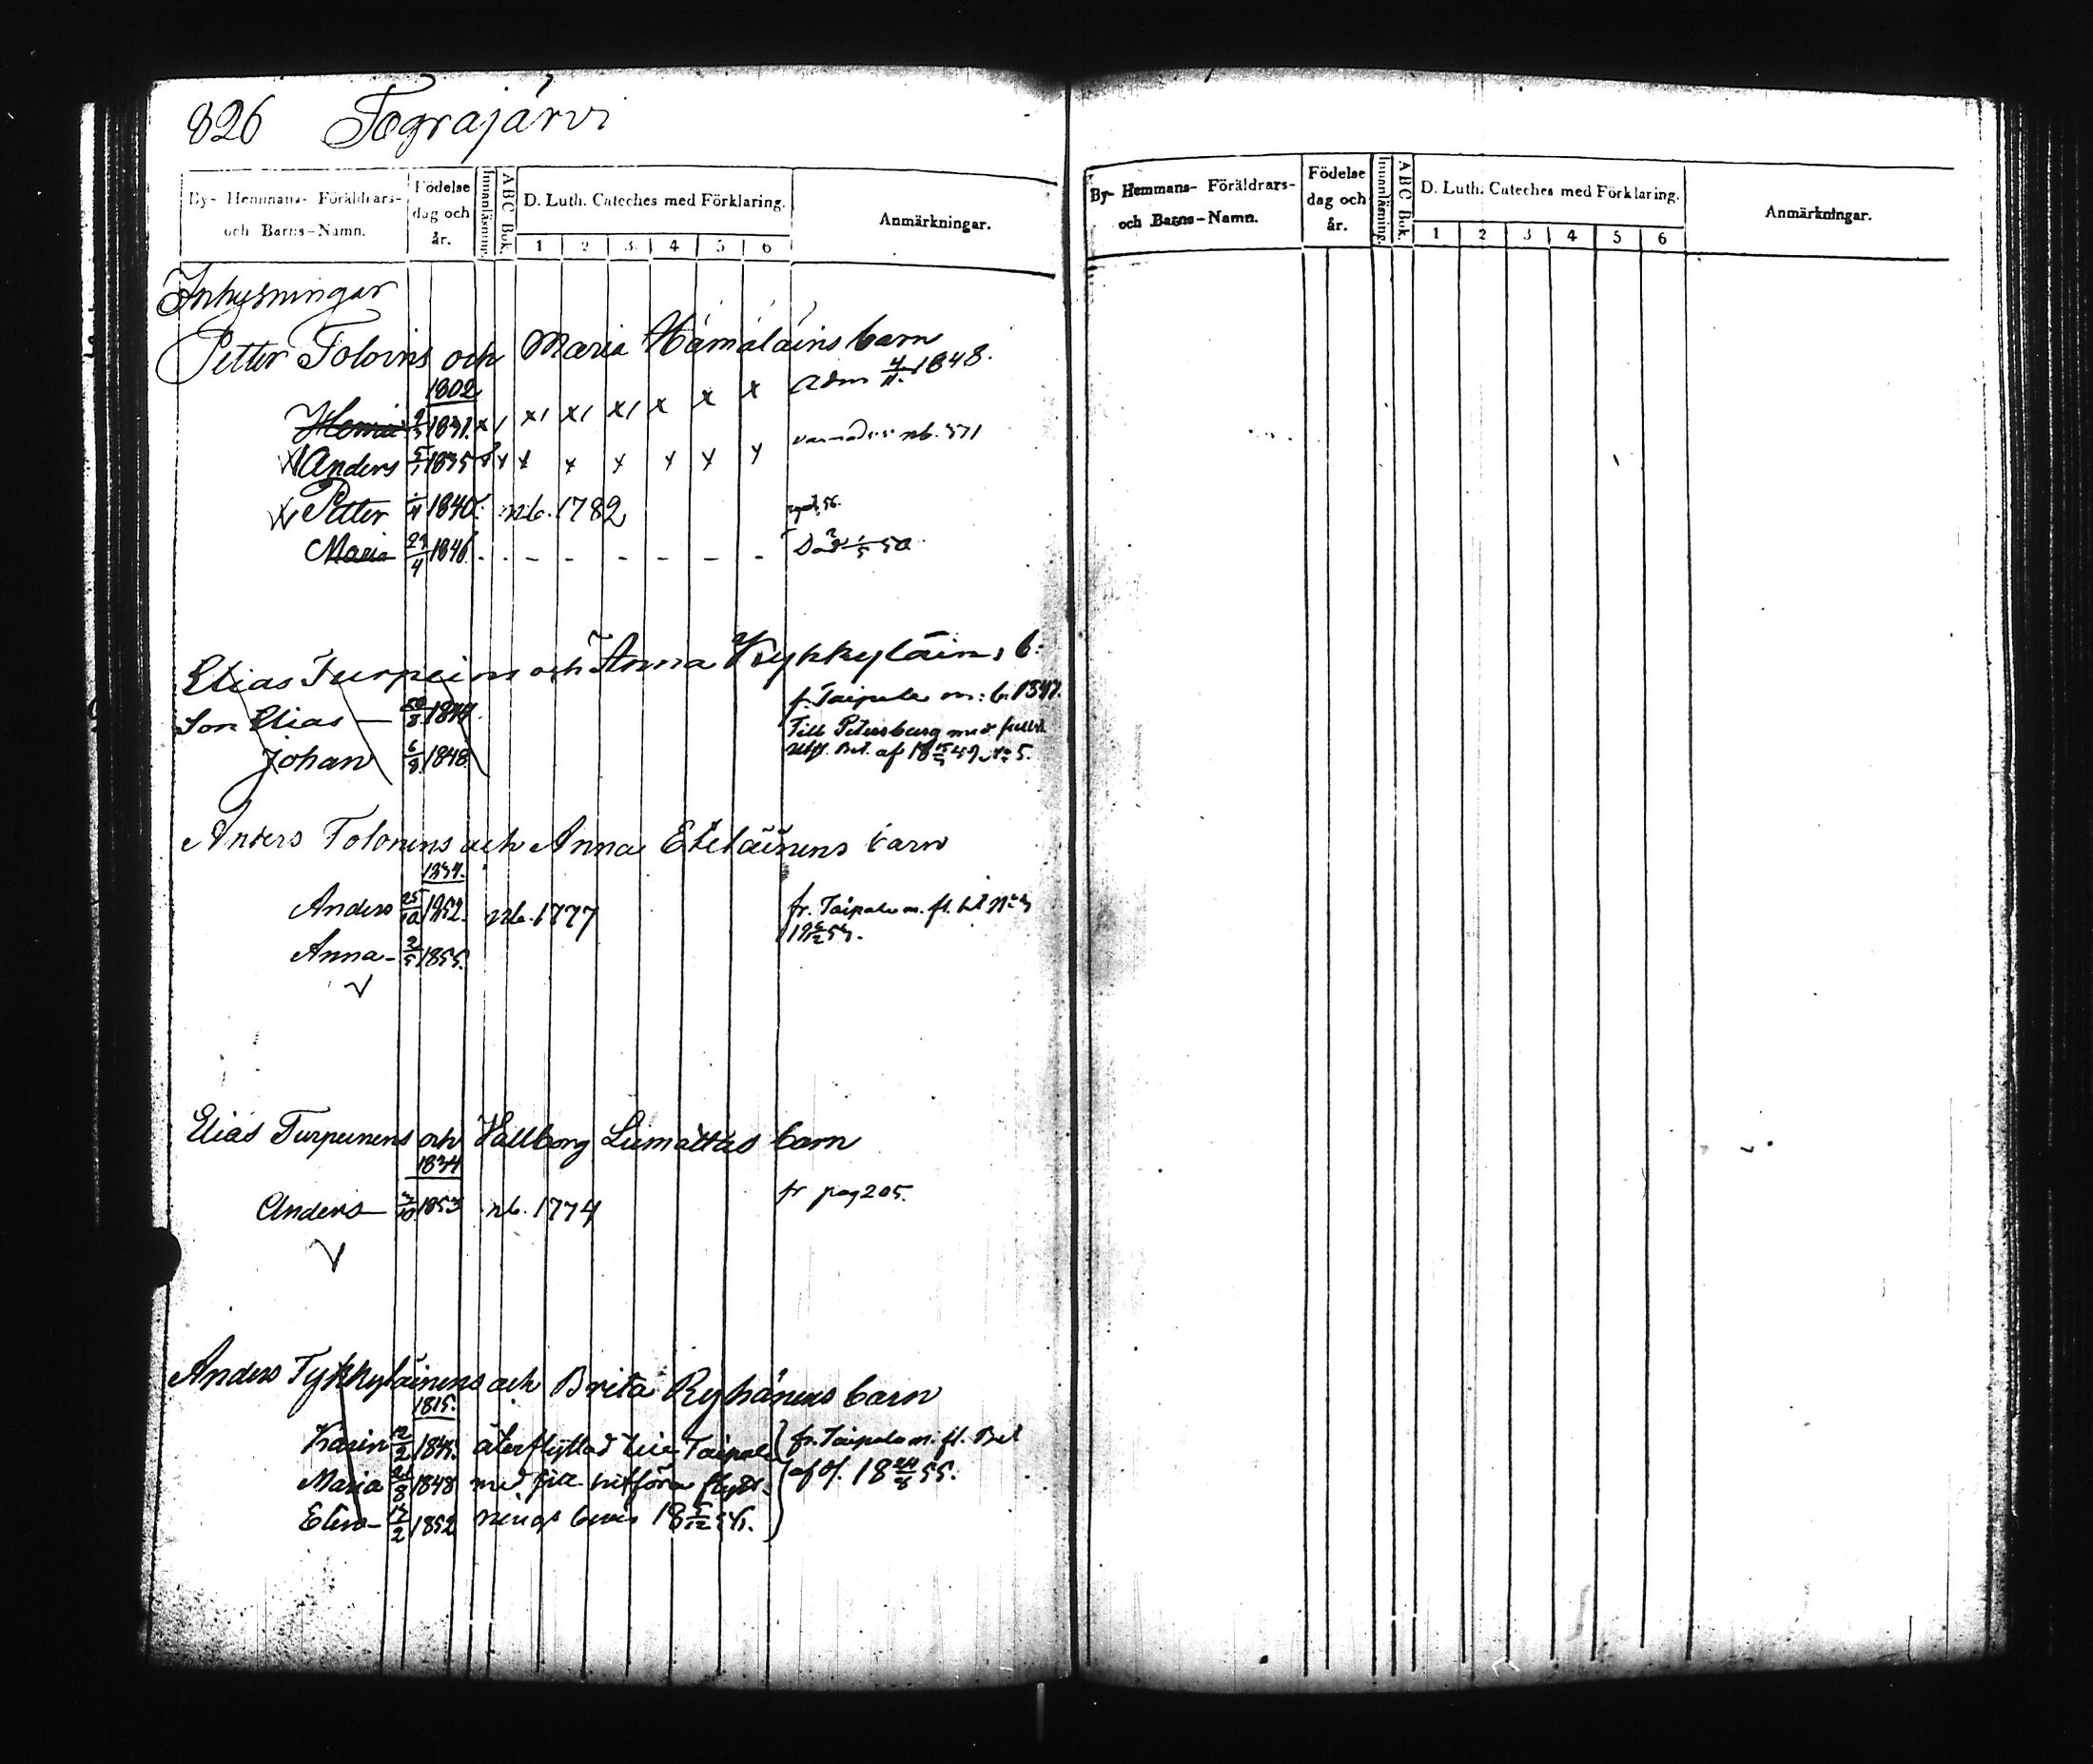 826 Tograjärvi
By- Hemmans- Föräldrars- och Barns-Namn. Födelse dag och år. Innanläsning. A B C Bok. D. Luth. Cateches med Förklaring. 1 2 3 4 5 6 Anmärkningar.
Inhysningar
Petter Tolovns och Maria Hämäläins barn
1802
Adm 4/11 1848.
1831. x1 x1 x1 x1 x x x
Anders 5/1 1835 x x x x x x x nb. 571
Petter 1840. nb. 1782
Maria 29/4 1846. - - - - - - - - Död 50
Elias Turpein och Anna Tykkyläins b:
Son Elias — 1844. fr. Taipale m: b. 1847.
Till Petersburg med
Johan 6/8 1848. Bet. af 18 49 No 5.
Anders Tolonens och Anna Eteläinens barn
Anders 25/10 1852. nb. 1777 fr. Taipale m. fl.
Anna - 2/5 1855.
Elias Turpeinens och Vallborg Liimattas barn
1834
Anders — 1853 nb. 1774 fr pag 205.
Anders Tykkyläinens och Brita Ryhänens barn
1815.
Karin 12/2 1845. återflyttad till Taipale fr. Taipale m. fl. Bet
Maria 1848 med sitt hitförda flytt- af d. 18 24/8 55.
Elin - 17/2 1852 nings bevis 18 5/12
By- Hemmans- Föräldrars- och Barns-Namn. Födelse dag och år. Innanläsning. A B C Bok. D. Luth. Cateches med Förklaring. 1 2 3 4 5 6 Anmärkningar.